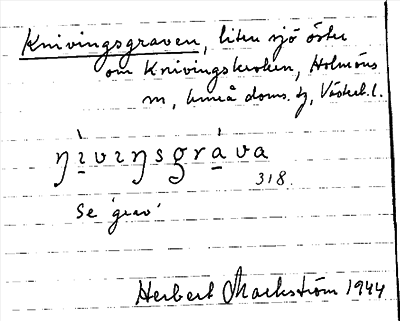 Knivingsgraven, liten sjö öster
om Knivingskroken, Holmöns
sn, Umeå doms. tg, Västerb. l.
ŋɪ̀vɪŋsgrá̱va
318.
Se 'grav'
Herbert Markström 1944